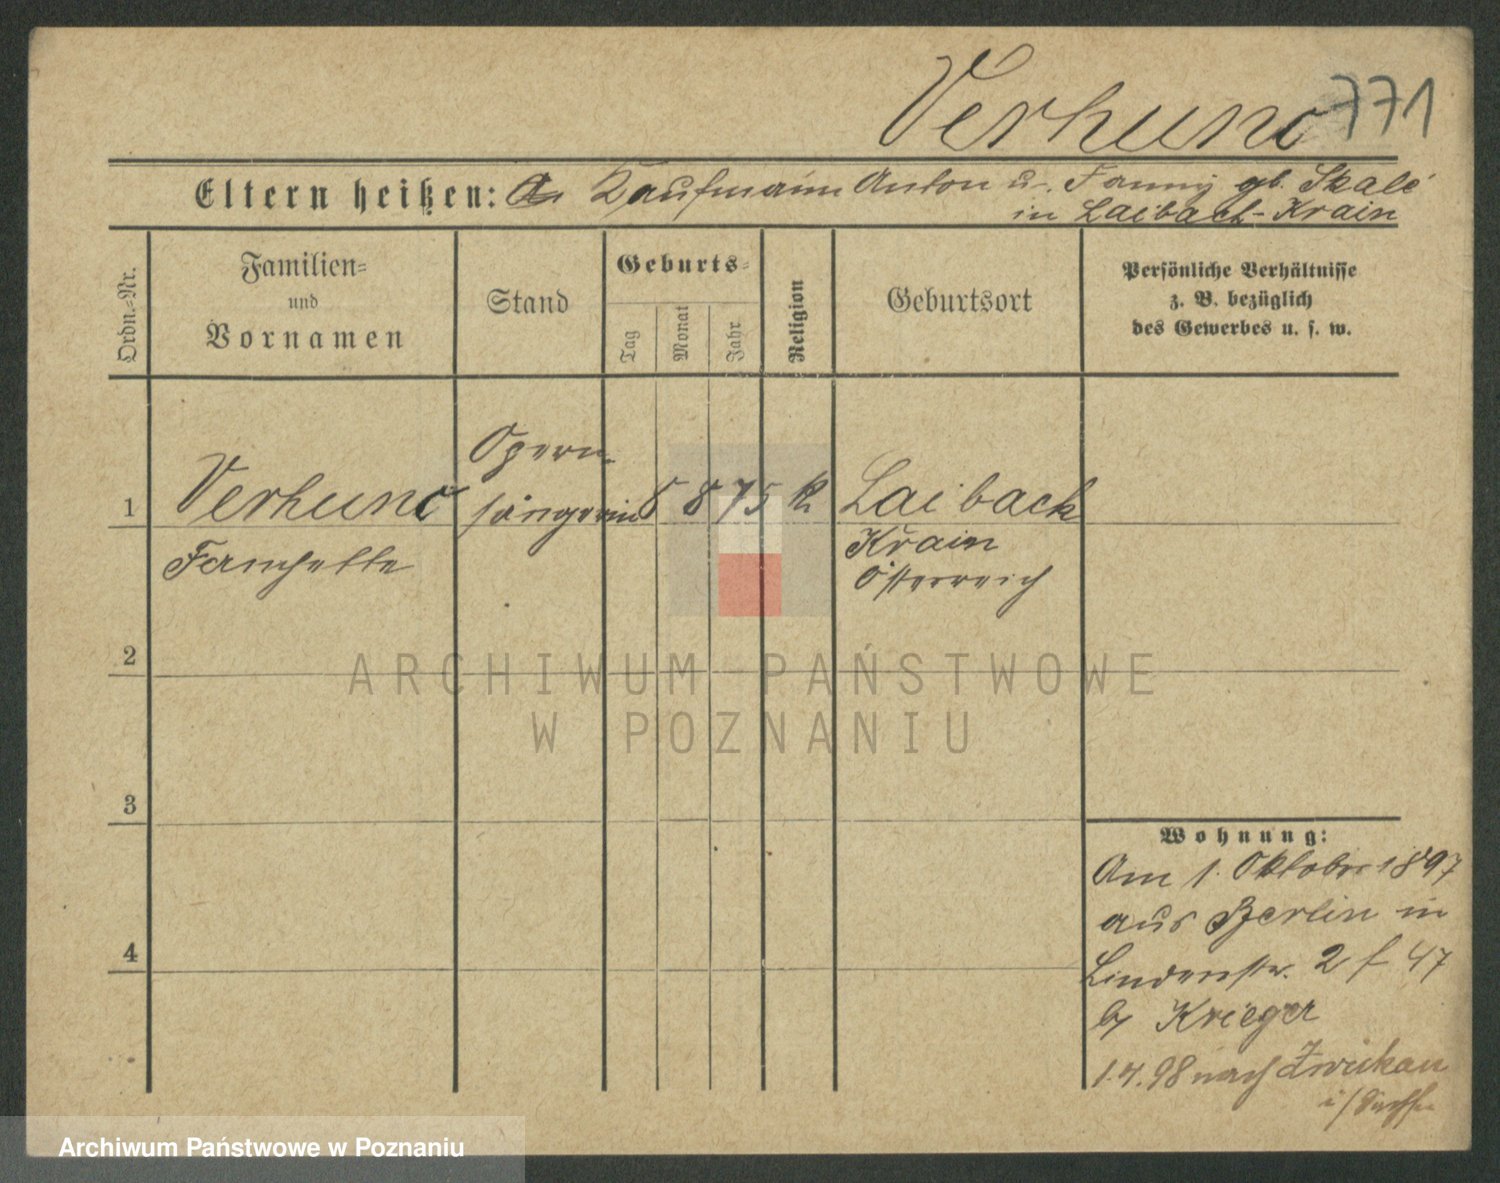 Verhunc 771
Eltern heißen: Kaufmann Anton u. Fanny gb. Skalé
in Laibach-Krain
Ordn.-Nr.
Familien-
und
Vornamen
Stand
Geburts-
Tag
Monat
Jahr
Religion
Geburtsort
Persönliche Verhältnisse
z. B. bezüglich
des Gewerbes u. s. w.
Opern-
1 Verhunc sängerin 8 8 75 k Laibach
Krain
Österreich
2
ARCHIWUM PAŃSTWOWE
W POZNANIU
3
4
Wohnung:
Am 1. Oktober 1897
aus Berlin in
Lindenstr. 2 f 47
b/ Krieger
1.4.98 nach Zwickau
i/Sachsen
Archiwum Państwowe w Poznaniu